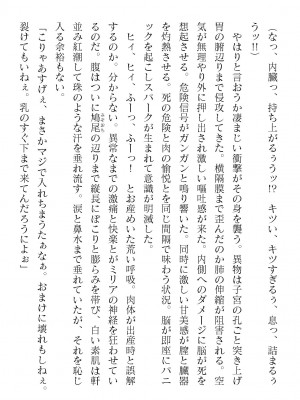 （なっ、内臓っ、持ち上がるぅうッ!?　キツい、キツすぎるぅぅ、息っ、詰まるぅ
うッ!!）
　やはりと言おうか凄まじい衝撃がその身を襲う。異物は子宮の孔ごと突き上げ
て胃の腑辺りまで侵攻する。横隔膜まで歪んだのか肺の伸縮が阻害される。空
気が無理やり外に押し出され激しい嘔吐感が来た。内側へのダメージに脳が死を
想起させる。危険信号がガンガンと鳴り響いた。同時に激しい甘美感が膣と臓器
を灼熱させる。死の危険と肉の愉悦とを同じ間隔で味わう状況。脳が即座にパニ
ックを起こしスパークが生まれて意識が明滅した。
　ヒィ、ヒィ、ふーっ、ふーっ！　とお産めいた荒い呼吸。肉体が出産時と誤解
するのか。分からない。異常なまでの激痛と快楽とがミリアの神経を狂わせてい
るのだ。腹はついに鳩尾の辺りまで縦長にぼこりと膨らみを帯び、白い素肌は軒
並み紅潮して珠のような汗を垂れ流す。涙と鼻水まで垂れていたが、それを恥じ
入る余裕もない。
「こりゃあすげぇ、まさかマジで入れちまうたぁなぁ。おまけに壊れもしねぇ。
裂けてもいねぇ。乳のすぐ下まで来てんだろうによぉ」